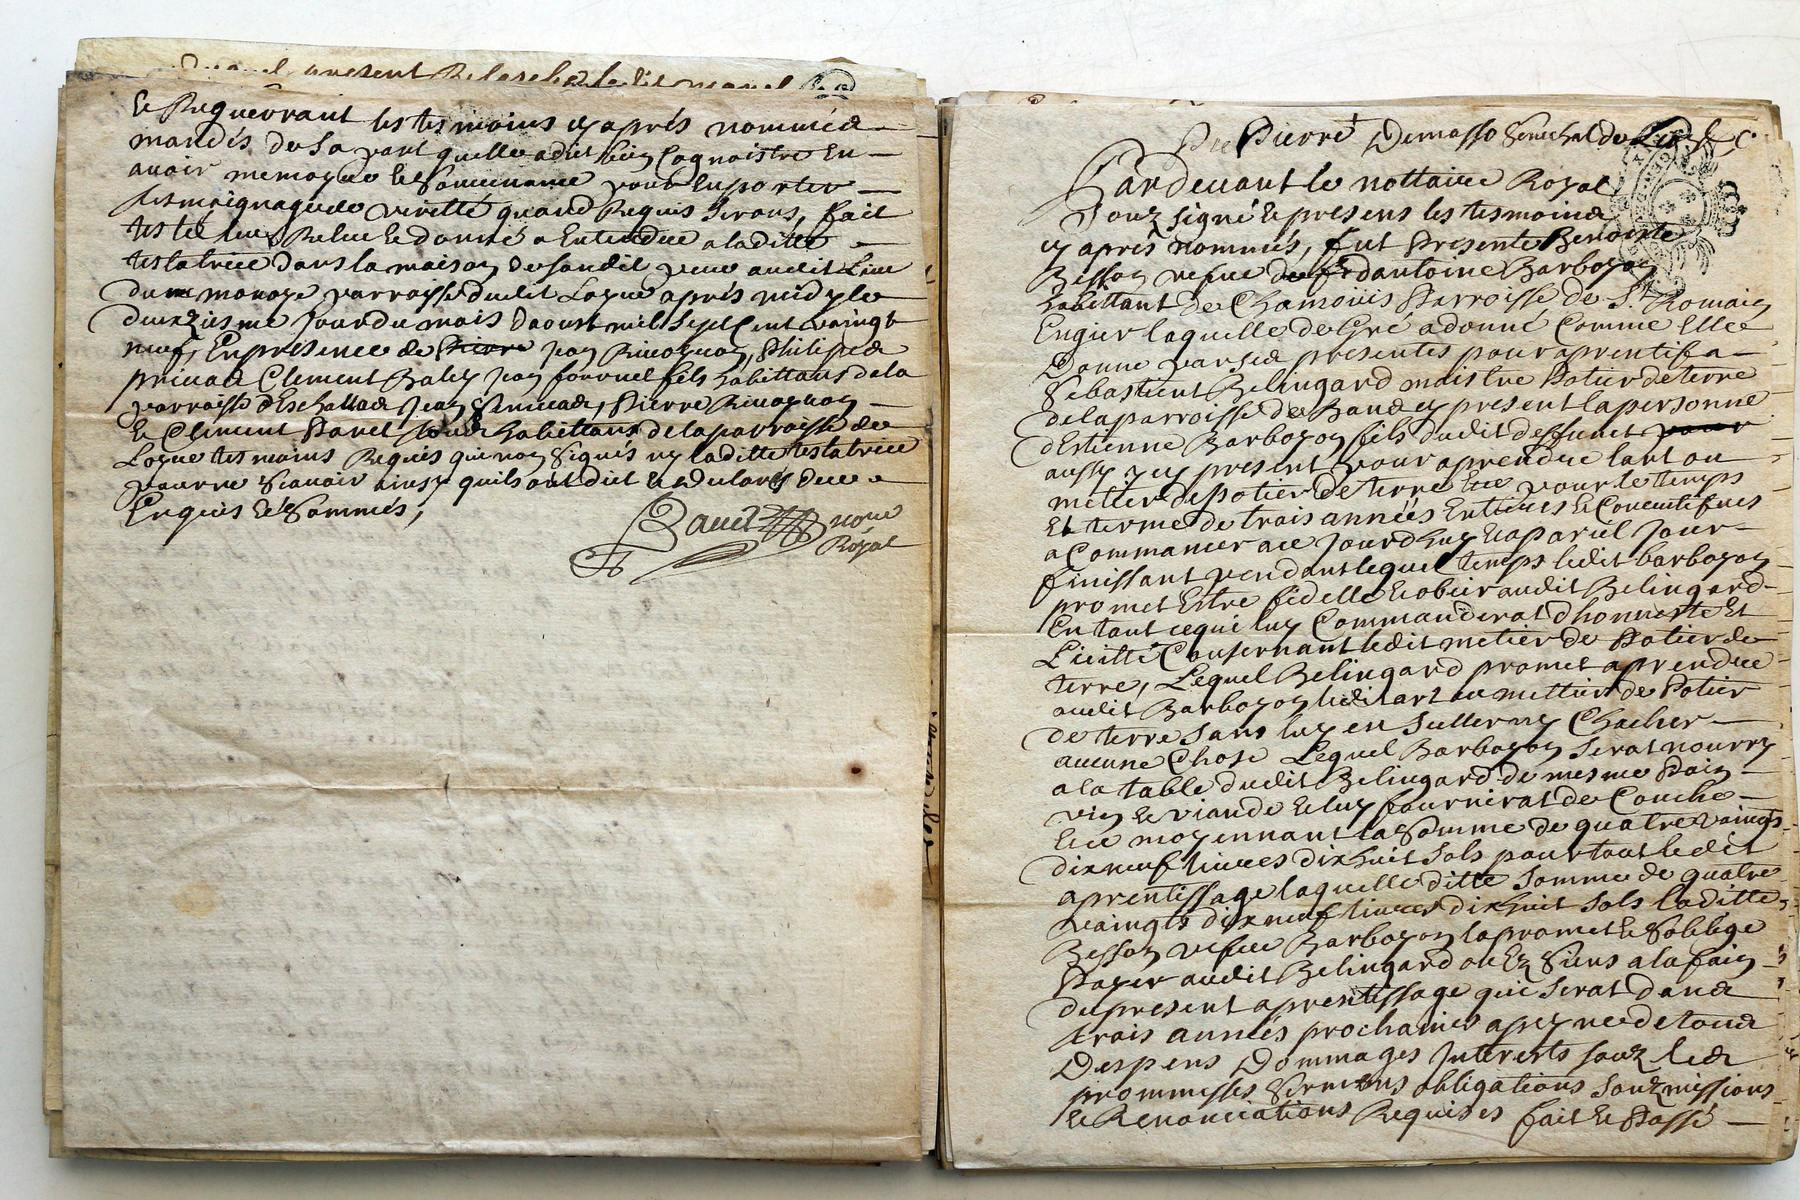 Duquel present
le Requerrant les tesmoins cy après nommés
mandés de sa part quelle a dit bien Cognoistre En
avoir memoyre le souvename pour En porter
tesmoignage de veritté quand Requis serons, fait
testé leu, Releu le donné a Entendre a laditte
testatrice dans la maison de sondit pere audit Lieu
du monoye parroisse dudit Loyre après midy le
deuxziesme Jour du mois daoust mil sept Cent vaingt
neuf, En presence de Pierre Jean Rivoyron, Philipe
privas Clement Baley Jean fournel fils habittans de la
parroisse dEschallas Jean Pierre Rivoyron
le Clement Pavet tous habittans de la parroisse de
Loyre tesmoins Requis qui non signés ny laditte testatrice
pour ne scavoir ainsy quils ont dict le declaré de ce
Enquis lé Sommés,
nore
Royal
Pierre Demasso Senechal de Lion &c
Pardevant le nottaire Royal
Souz signé le presens les tesmoins
cy après nommés, fut Presente Benoiste
Besson vefve de feu dantoine Barboyon
habittant de Chamoüis Parroisse de St Romain
Engier laquelle de Gré a donné Comme Elle
Donne par ses presentes pour aprentif a
Sebastient Belingard maistre Potier de terre
de la parroisse de Bans cy present la personne
dEstienne Barboyon fils dudit deffunct pour
aussy icy present pour aprendre lart ou
metier de Potier de terre Ce pour le temps
Et terme de trois années Entieres le Consecutifves
a Commancer a ce Jourdhuy le a pariel Jour
finissant pendant lequel temps ledit barboyon
promet Estre fidelle le obeir audit Belingard
En tout ce qui luy Commanderat dhonneste Et
Licitte Consernant ledit metier de Potier de
terre, Lequel Belingard promet aprendre
audit Barboyon ledit art ou mettier de Potier
de terre sans luy en Seller ny Chacher
aucune Chose Lequel Barboyon serat nourry
a la table dudit Belingard de mesme Pain
vin le viande le luy fournirat de Couche
le ce moyennant la Somme de quatre vaingts
dix neuf livres dix huit sols pour tout ledit
aprentissage laquelle ditte somme de quatre
vaingts dix neuf livres dix huit sols laditte
Besson vefve Barboyon la promet le soblige
Payer audit Belingard ou Ez siens a la fain
du present aprentissage qui serat dans
trois années prochaines a peyne de tous
Despens Dommages Interests souz les
prommesses Sermens obligations souzmissions
le Renonciations Requises fait le Passé